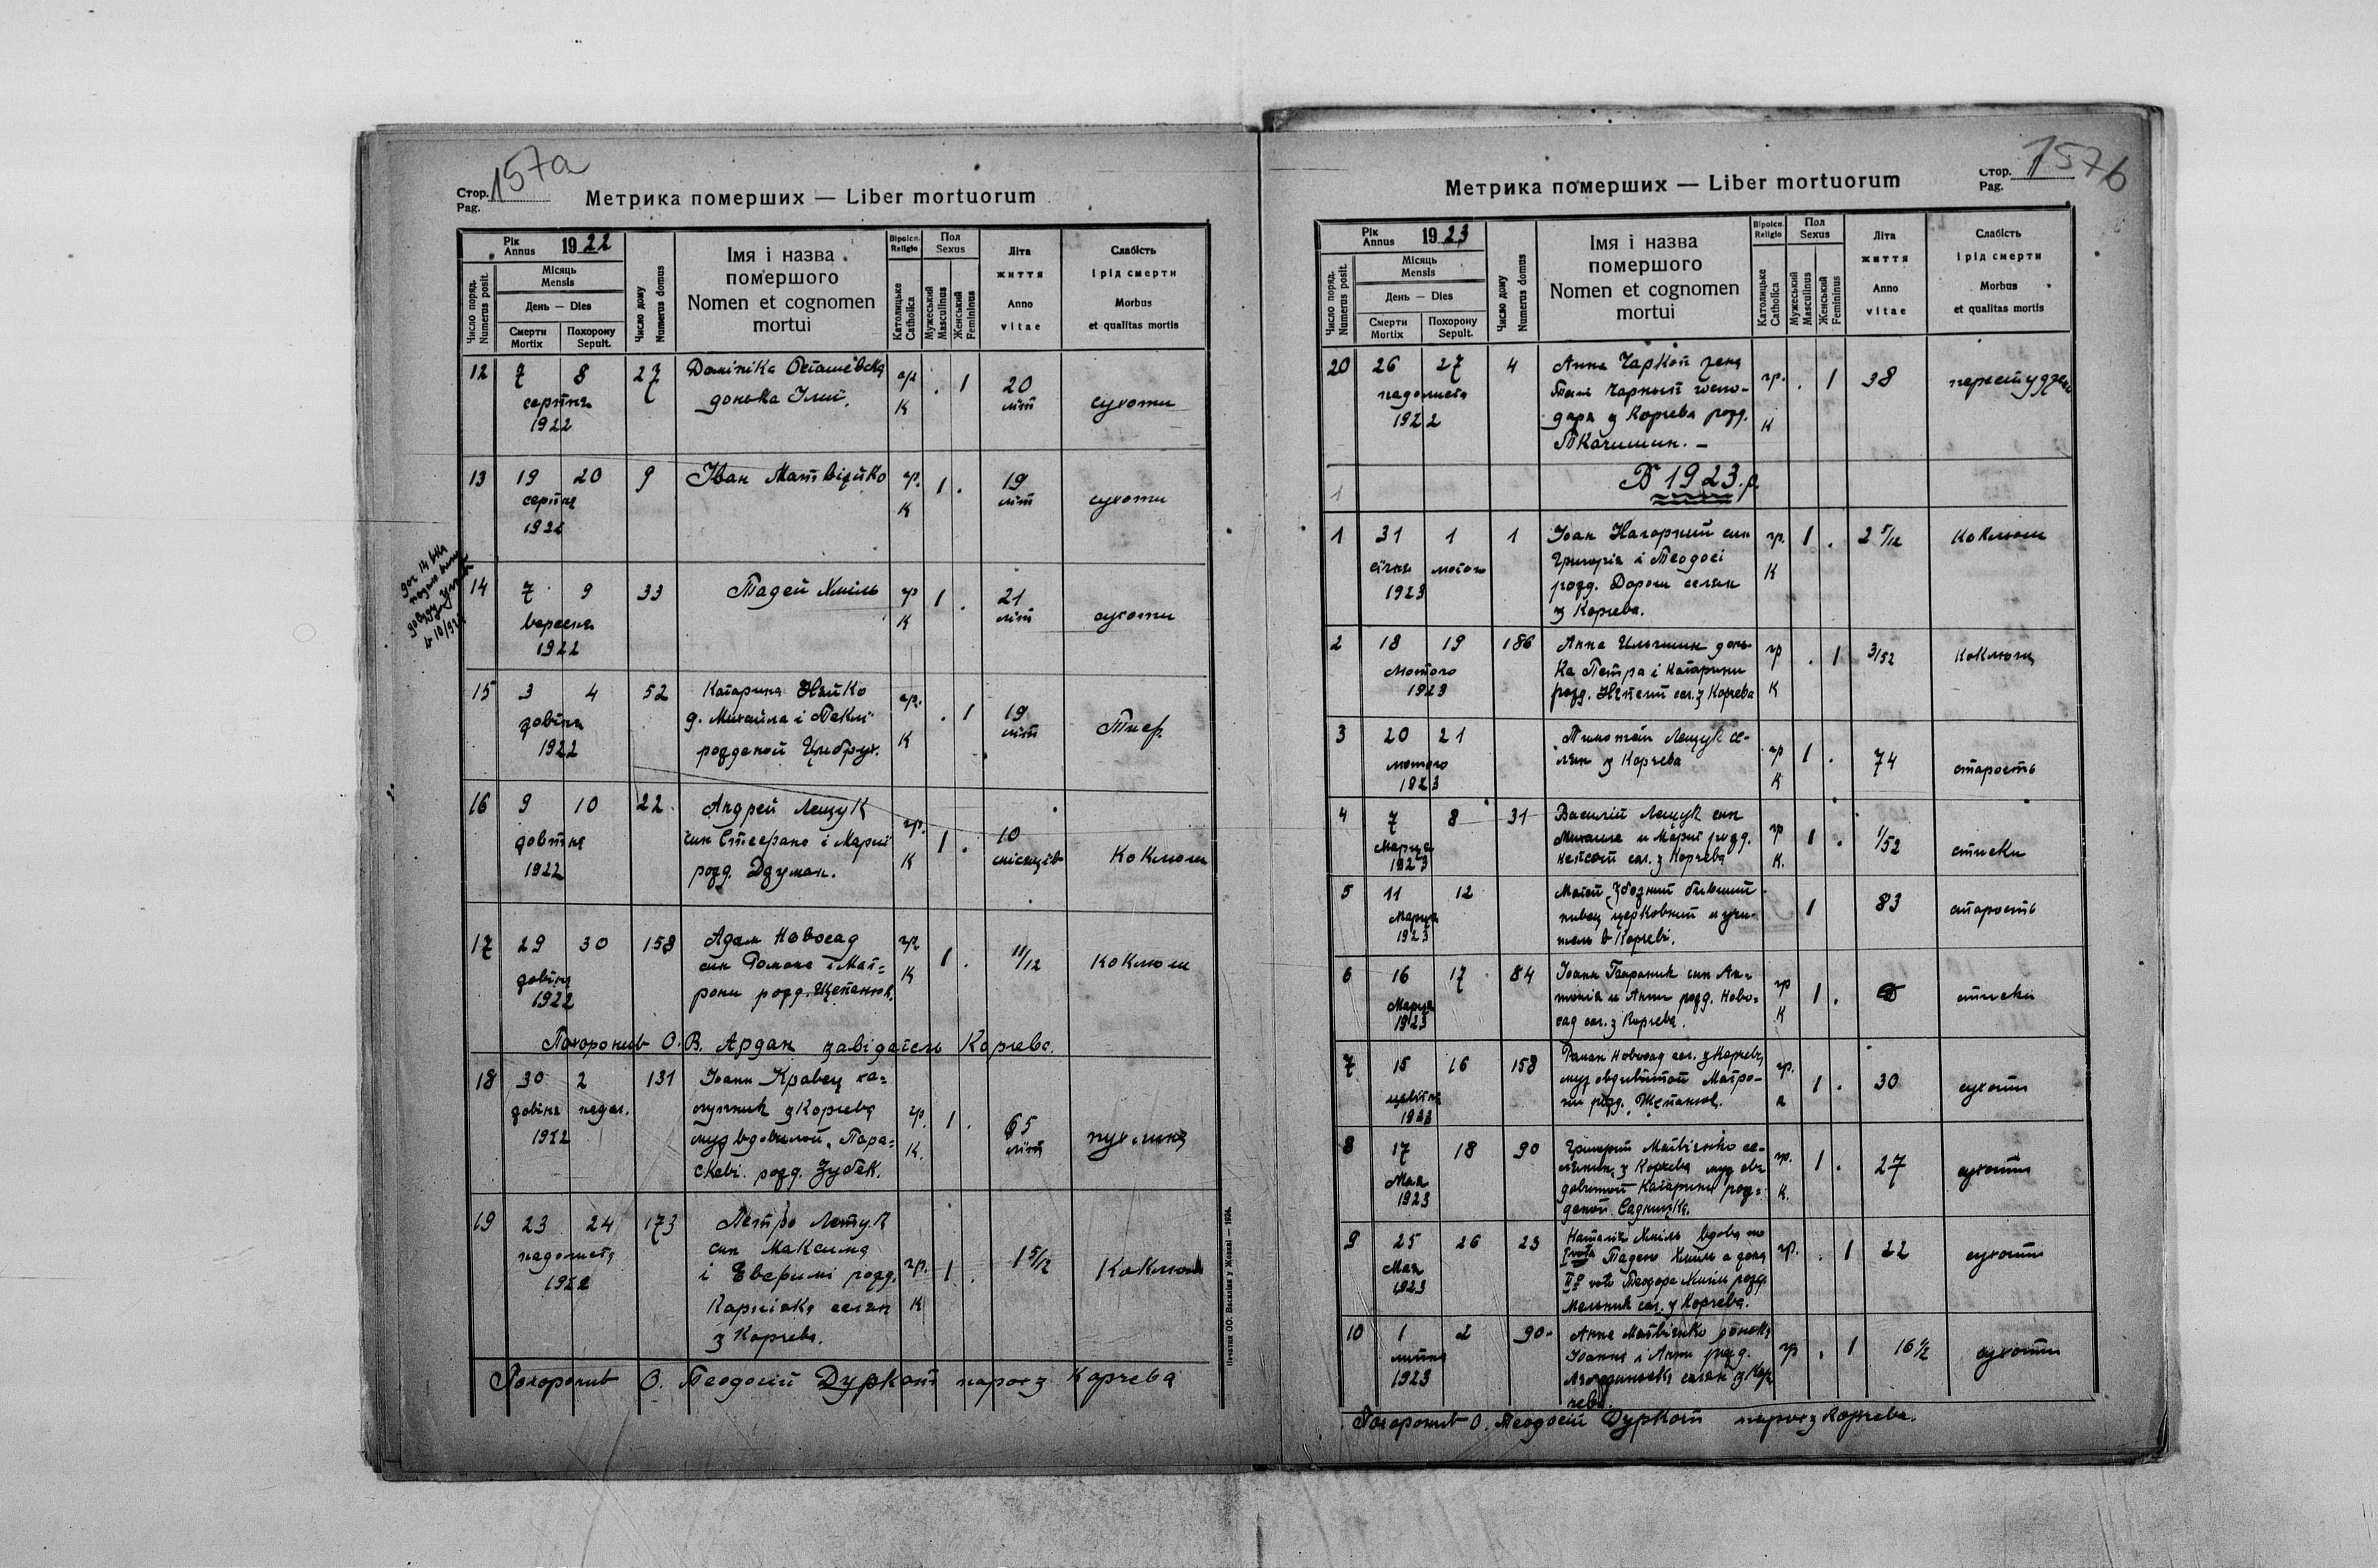 157а
Стор.
Pag.
Метрика померших — Liber mortuorum
Рік
Annus
1922
Місяць
Mensis
День — Dies
Смерти
Mortix
Похорону
Sepult.
Число поряд.
Numerus posit.
Число дому
Numerus domus
Імя і назва
помершого
Nomen et cognomen
mortui
Віроісп.
Religio
Католицьке
Catholica
Пол
Sexus
Мужеський
Masculinus
Женський
Femininus
Літа
життя
Anno
vitae
Слабість
і рід смерти
Morbus
et qualitas mortis
12 7 8 27 Домініка Осташевска гр 1 20
серпня донька Ілиї. к літ сухоти
1922
13 19 20 9 Іван Матвіїйко гр. 1 . 19
серпня к літ сухоти
1922
14 7 9 33 Тадей Хміль гр 1 . 21
вересня к літ сухоти
1922
15 3 4 52 Катарина Нейко гр. . 1 19
жовтня д. Михайла і Теклі літ Тиф
1922 рожденої Цимбрух. к
16 9 10 22 Андрей Лещук гр. 1 . 10
жовтня син Стефана і Марії місяців Коклюш
1922 розд. Дзуман. к
17 29 30 158 Адам Новосад гр. 1 . 11/12 коклюш
жовтня син Романа і Мат=
1922 рони розд. Щепанюк. к
Похоронив О. В. Ардан завідатель Корчева.
18 30 2 131 Іоанн Кравец ха=
жовтня падол. лупник з Корчева гр. 1 . 65
1922 муж вдовилой Пара= літ пухлина
скеві розд. Зубек. к.
19 23 24 173 Петро Лещук
падолиста син Максима 1 5/12
1922 і Евфимі розд. гр. 1 . Коклюш
Карпінка селян к
з Корчева.
Похоронив О. Теодосій Дуркот парох з Корчева
157б
Стор.
Pag.
Метрика померших — Liber mortuorum
Рік
Annus
1923
Місяць
Mensis
День — Dies
Смерти
Mortix
Похорону
Sepult.
Число поряд.
Numerus posit.
Число дому
Numerus domus
Імя і назва
помершого
Nomen et cognomen
mortui
Віроісп.
Religio
Католицьке
Catholica
Пол
Sexus
Мужеський
Masculinus
Женський
Femininus
Літа
життя
Anno
vitae
Слабість
і рід смерти
Morbus
et qualitas mortis
20 26 27 4 Анна Чаркот жена гр. . 1 38
падолиста госпо-
1922 даря з Корчева розд. к
Ткачишин. –
В 1923. р.
1 31 1 1 Іоан Нагорний син гр. 1 . 2 5/12 Коклюш
січня лютого Григорія і Теодосі к
1923 розд. Дорош селян
з Корчева.
2 18 19 186 Анна донь- гр . 1 3/52 коклюш
Лютого ка Петра і Катарини
1923 розд. сел. з Корчева к
3 20 21 Тимотей Лещук се- гр 1 . 74 старость
лютого лян з Корчева к
1923
4 7 8 31 Василій Лещук син гр 1 . 1/52 стиски
Марця Михаила и Марії розд.
1923 сел. з Корчева к.
5 11 12 Матей бивший 1 83 старость
Марця пивец церковний и учи-
1923 тель в Корчеві.
6 16 17 84 Іоанн син Ан- гр 1 . стиски
Марця тонія и Анни розд. Ново-
1923 сад сел. з Корчева. к
7 15 16 158 Роман Новосад сел. з Корчева гр. 1 . 30 сухоти
цвітня муж овдовілой Матро-
1923 ни розд. Щепанюк. к
8 17 18 90 Григорий Матвієйко се- гр. 1 . 27 сухоти
Мая з Корчева муж ов-
1923 довілой Катарини рож- к.
деной Садницка.
9 25 26 23 Наталія Хміль вдова по гр. . 1 22 сухоти
Мая I voto Тадею Хміль а жена
1923 II° voto Теодора Хміль розд.
Мельник сел. з Корчева.
10 1 2 90. Анна Матвієйко донька гр . 1 16 1/2 сухоти
липня Іоанна і Анни розд.
1923 селян з Кор
чева.
Похоронив О. Теодосій Дуркот парох з Корчева.
Печатня ОО. Василіян у Жовкві — 1904.